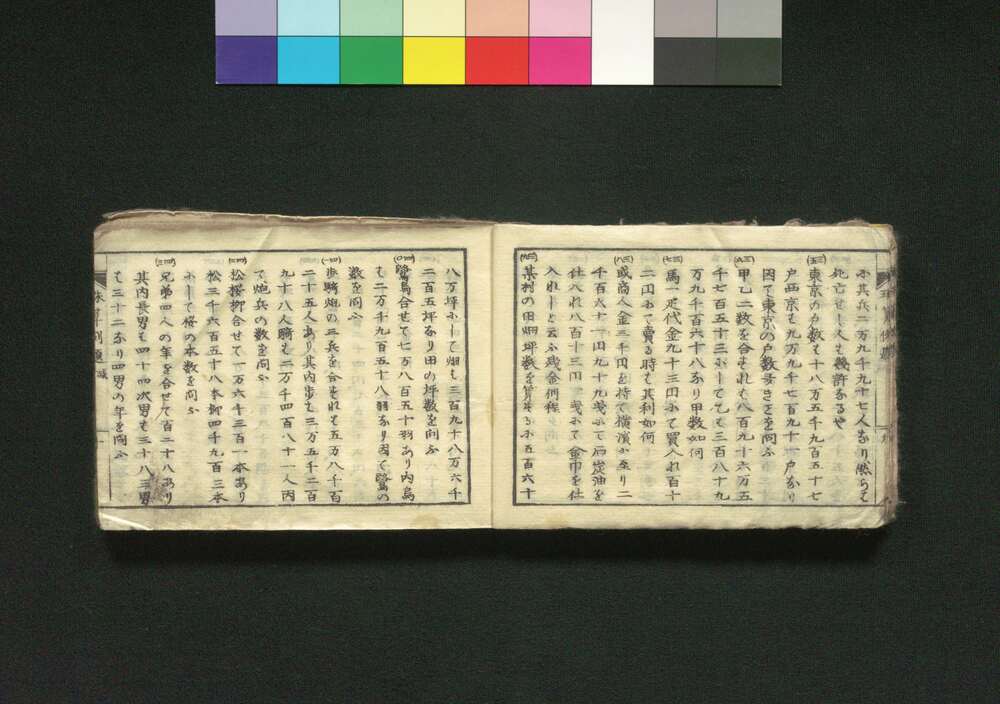 小其兵二万九千九十七人なり然らて
死亡せし人も幾許なるや
(三五)
東京の戸数も十八万五千九百五十七
戸西京も九万九千七百九十一戸なり
因て東京の戸数多きを問ふ
(三六)
甲乙二数を合すれも八百九十六万五
千七百五十三にして乙も三百八十九
万九千百六十八なり甲数如何
(三七)
馬一疋代金九十三円にて買入れ百十
二円にて賣る時も其利如何
(三八)
或商人金三千円を持て横濱に至り二
千百六十一円九十九銭にて石炭油を
仕入れ八百十三円 銭にて金巾を仕
入れしと云ふ残金何程
(三九)
某村の田畑坪数を算するに五百六十
八万坪にして畑も三百九十八万六千
二百五坪なり田の坪数を問ふ
(四〇)
鷺烏合せて七万八百五十羽あり内烏
も二万千九百五十八羽なり因て鷺の
数を問ふ
(四一)
歩騎炮の三兵を合すれも五万八千百
二十五人あり其内歩も三万五千二百
九十八人騎も二万千四百八十一人因
て炮兵の数を問ふ
(四二)
松桜柳合せて一万六千三百一本あり
松三千六百五十八本柳四千九百三本
にして桜の本数を問ふ
(四三)
兄弟四人の年を合せて百二十八あり
其内長男も四十四次男も三十八三男
も三十二なり四男の年を問ふ